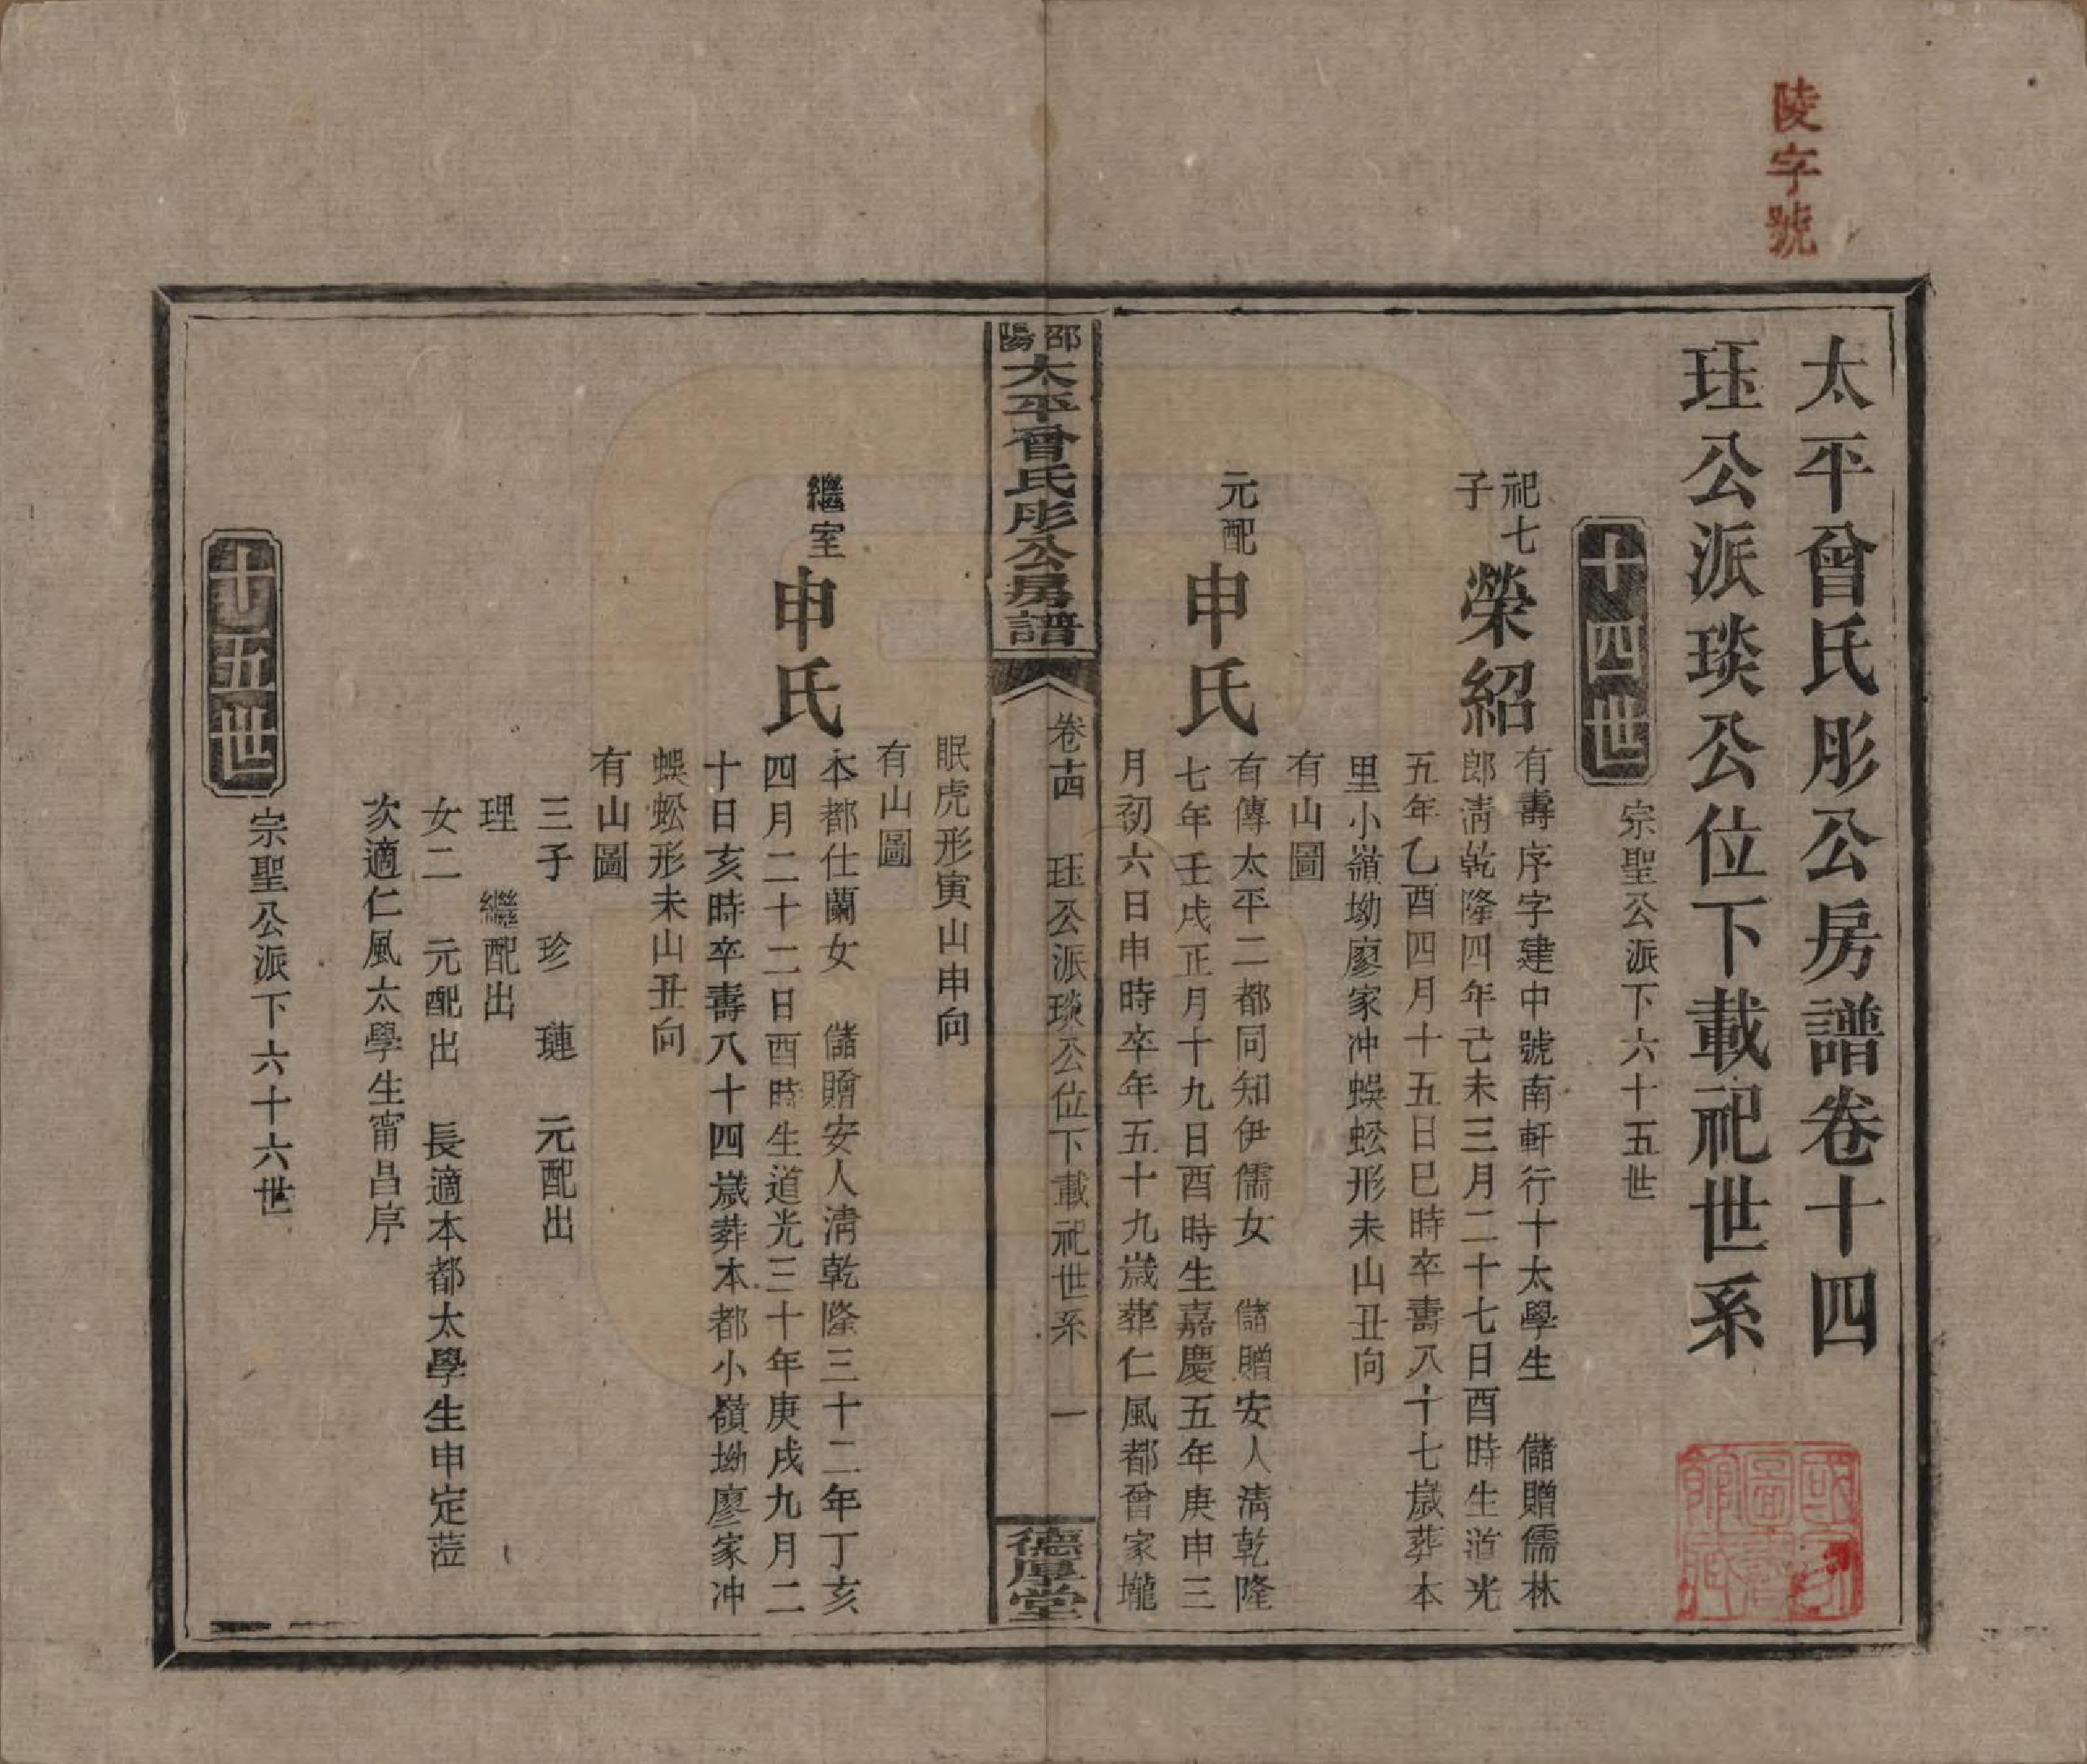 陵字號
太平曾氏彤公房譜卷十四
珏公派琰公位下載祀世系
十四世
宗聖公派下六十五世
祀七
子
榮紹
有壽序字建中號南軒行十太學生 儲贈儒林
郎清乾隆四年己未三月二十七日酉時生道光
五年乙酉四月十五日巳時卒壽八十七歲葬本
里小嶺坳廖家冲蜈蚣形未山丑向
有山圖
元配
申氏
有傳太平二都同知伊儒女 儲贈安人清乾隆
七年壬戌正月十九日酉時生嘉慶五年庚申三
月初六日申時卒年五十九歲葬仁風都曾家壠
邵陽
太平曾氏彤公房譜
卷十四 珏公派琰公位下載祀世系 一
德厚堂
眠虎形寅山申向
有山圖
繼室
申氏
本都仕蘭女 儲贈安人清乾隆三十二年丁亥
四月二十二日酉時生道光三十年庚戌九月二
十日亥時卒壽八十四歲葬本都小嶺坳廖家冲
蜈蚣形未山丑向
有山圖
三子 珍 璉 元配出
理 繼配出
女二 元配出 長適本都太學生申定蒞
次適仁風太學生甯昌序
十五世
宗聖公派下六十六世
國家圖書館藏